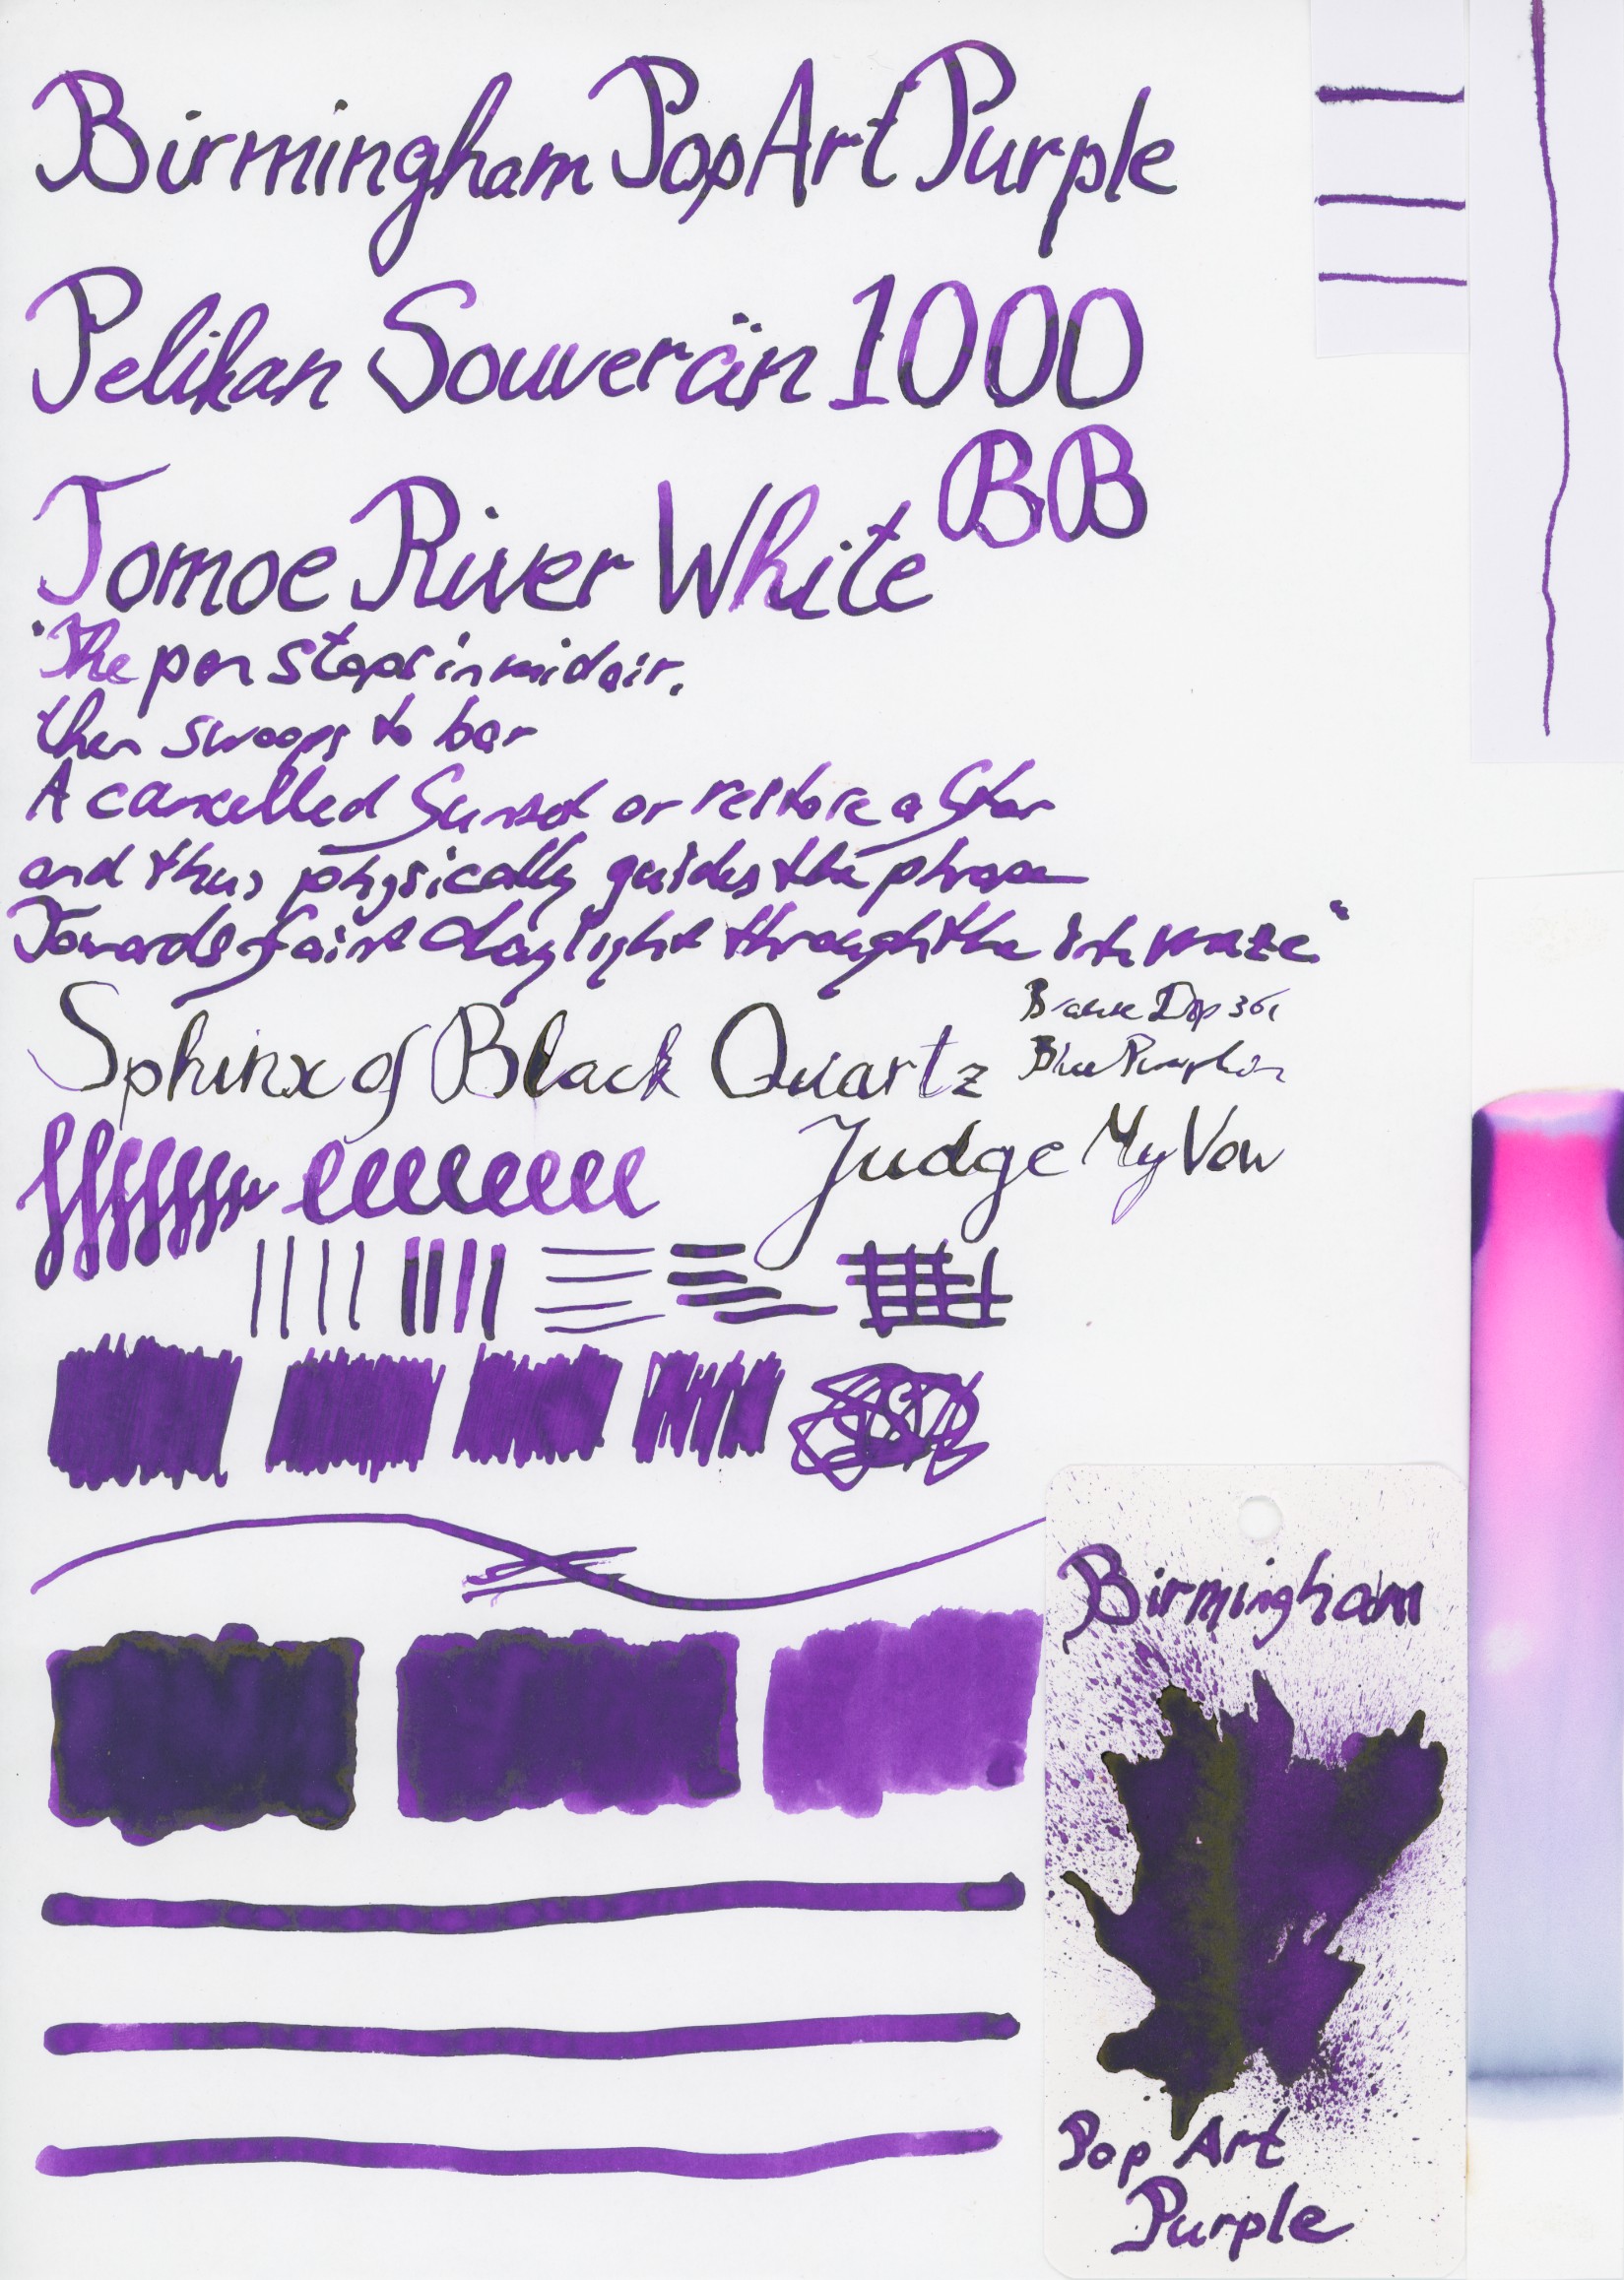 Birmingham Pop Art Purple
Pelikan Souverän 1000
BB
Tomoe River White
"The pen stops in midair,
then swoops to bar
A cancelled Sunset or restore a Star
and thus physically guides the phrase
Towards faint daylight through the ink maze"
Sphinx of Black Quartz
Brause
361
Blue Pumpkin
Judge My Vow
Birmingham
Pop Art
Purple